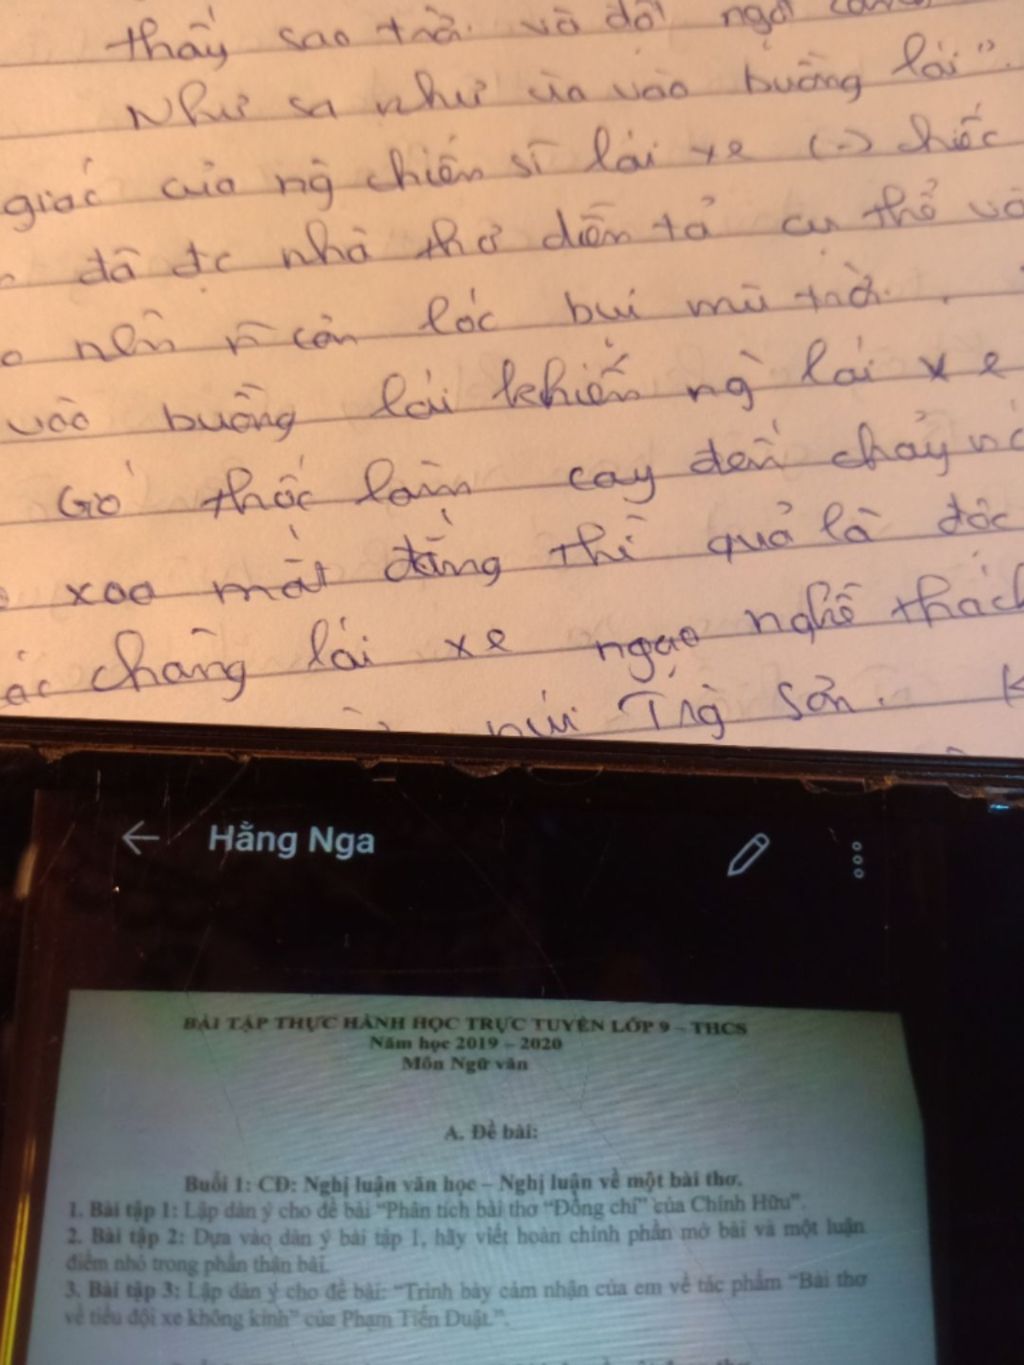 thấy sao trời. và đột ngột
Như sa như ùa vào buồng lái".
giác của ng chiến sĩ lái xe (-) chiếc
đã đc nhà thơ diễn tả cụ thể và
nên còn lốc bụi mù trời.
vào buồng lái khiến ng lái xe
Gió thốc làm cay đến chảy
xoa mắt đắng thì quả là độc
chàng lái xe ngạo nghễ thách
núi Trg Sơn. K
Hằng Nga
BÀI TẬP THỰC HÀNH HỌC TRỰC TUYẾN LỚP 9 – THCS
Năm học 2019 – 2020
Môn Ngữ văn
A. Đề bài:
Buổi 1: CĐ: Nghị luận văn học – Nghị luận về một bài thơ.
1. Bài tập 1: Lập dàn ý cho đề bài "Phân tích bài thơ "Đồng chí" của Chính Hữu".
2. Bài tập 2: Dựa vào dàn ý bài tập 1, hãy viết hoàn chỉnh phần mở bài và một luận
điểm nhỏ trong phần thân bài.
3. Bài tập 3: Lập dàn ý cho đề bài: "Trình bày cảm nhận của em về tác phẩm "Bài thơ
về tiểu đội xe không kính" của Phạm Tiến Duật.".